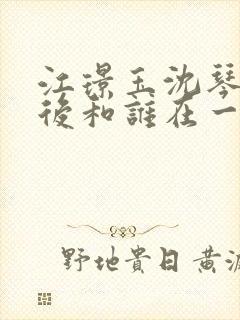 江璟玉沈琴
後和誰在一
野地貴日黃源